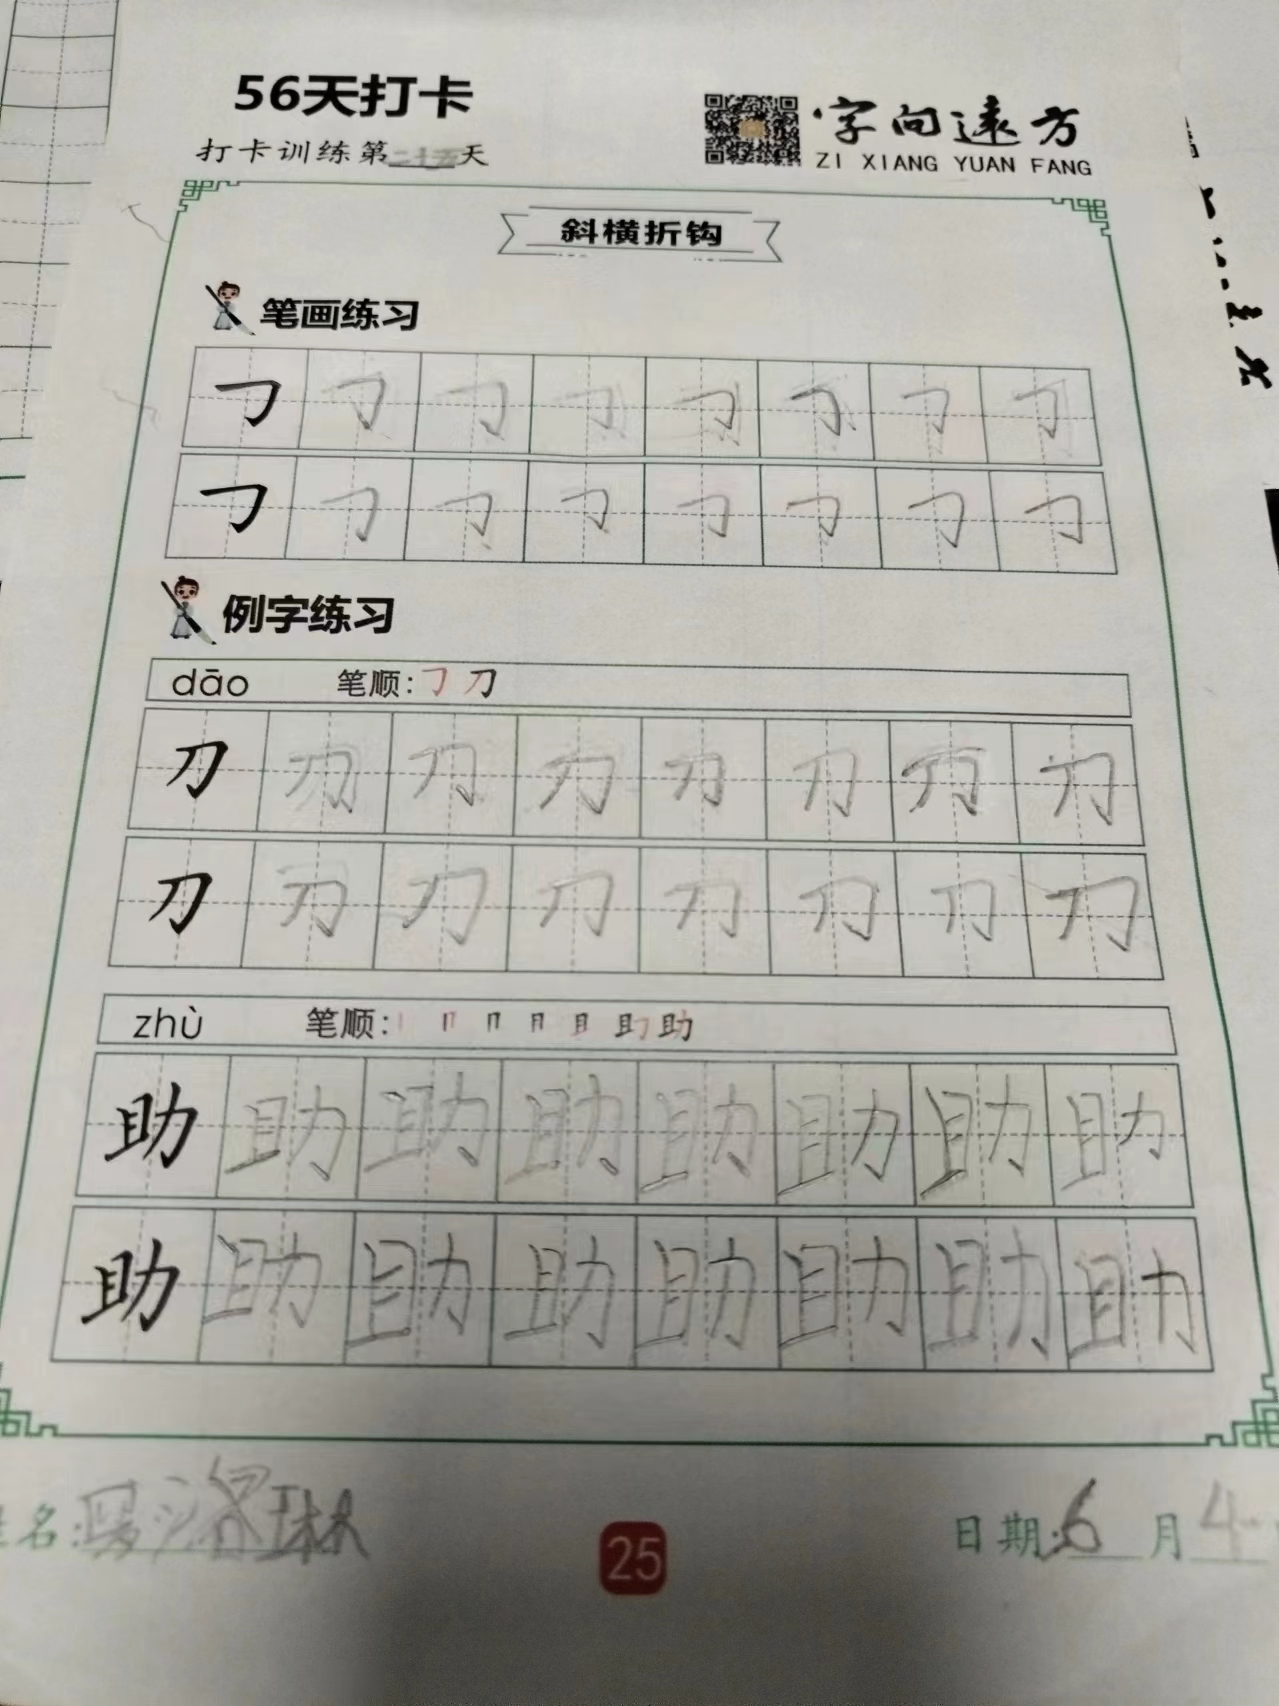 56天打卡
打卡训练第二十五天
字向遠方
ZI XIANG YUAN FANG
斜横折钩
笔画练习
㇆ ㇆ ㇆ ㇆ ㇆ ㇆ ㇆ ㇆
㇆ ㇆ ㇆ ㇆ ㇆ ㇆ ㇆ ㇆
例字练习
dāo 笔顺:㇆ 刀
刀 刀 刀 刀 刀 刀 刀 刀
刀 刀 刀 刀 刀 刀 刀 刀
zhù 笔顺: 助
助 助 助 助 助 助 助 助
助 助 助 助 助 助 助 助
姓名: 洛琳
日期:6月4
25